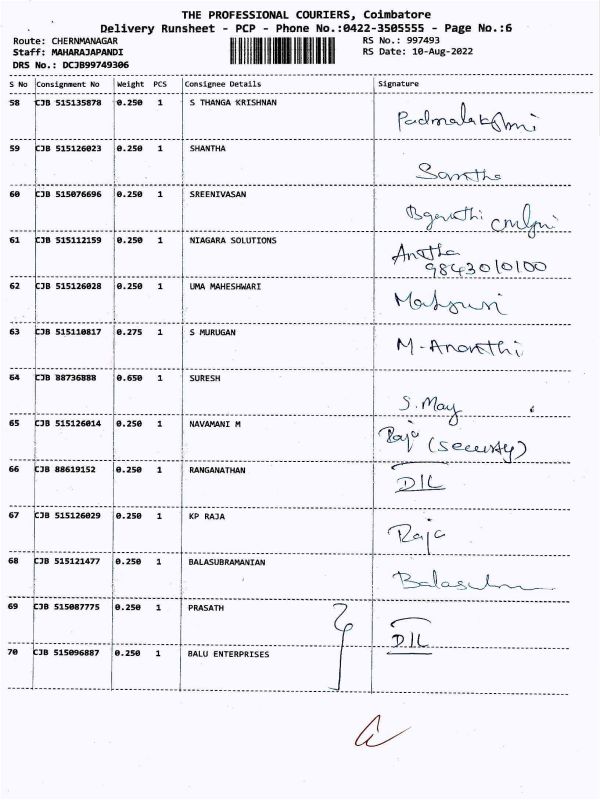 THE PROFESSIONAL COURIERS, Coimbatore
Delivery Runsheet - PCP - Phone No.:0422-3505555 - Page No.:6
Route: CHERNMANAGAR RS No.: 997493
Staff: MAHARAJAPANDI RS Date: 10-Aug-2022
DRS No.: DCJB99749306
S No Consignment No Weight PCS Consignee Details Signature
58 CJB 515135878 0.250 1 S THANGA KRISHNAN
Padmalakshmi
59 CJB 515126023 0.250 1 SHANTHA
Santha
60 CJB 515076696 0.250 1 SREENIVASAN
61 CJB 515112159 0.250 1 NIAGARA SOLUTIONS
9843010100
62 CJB 515126028 0.250 1 UMA MAHESHWARI
63 CJB 515110817 0.275 1 S MURUGAN
64 CJB 88736888 0.650 1 SURESH
S. May
65 CJB 515126014 0.250 1 NAVAMANI M
Raja (security)
66 CJB 88619152 0.250 1 RANGANATHAN
D/L
67 CJB 515126029 0.250 1 KP RAJA
Raja
68 CJB 515121477 0.250 1 BALASUBRAMANIAN
69 CJB 515087775 0.250 1 PRASATH
D/L
70 CJB 515096887 0.250 1 BALU ENTERPRISES